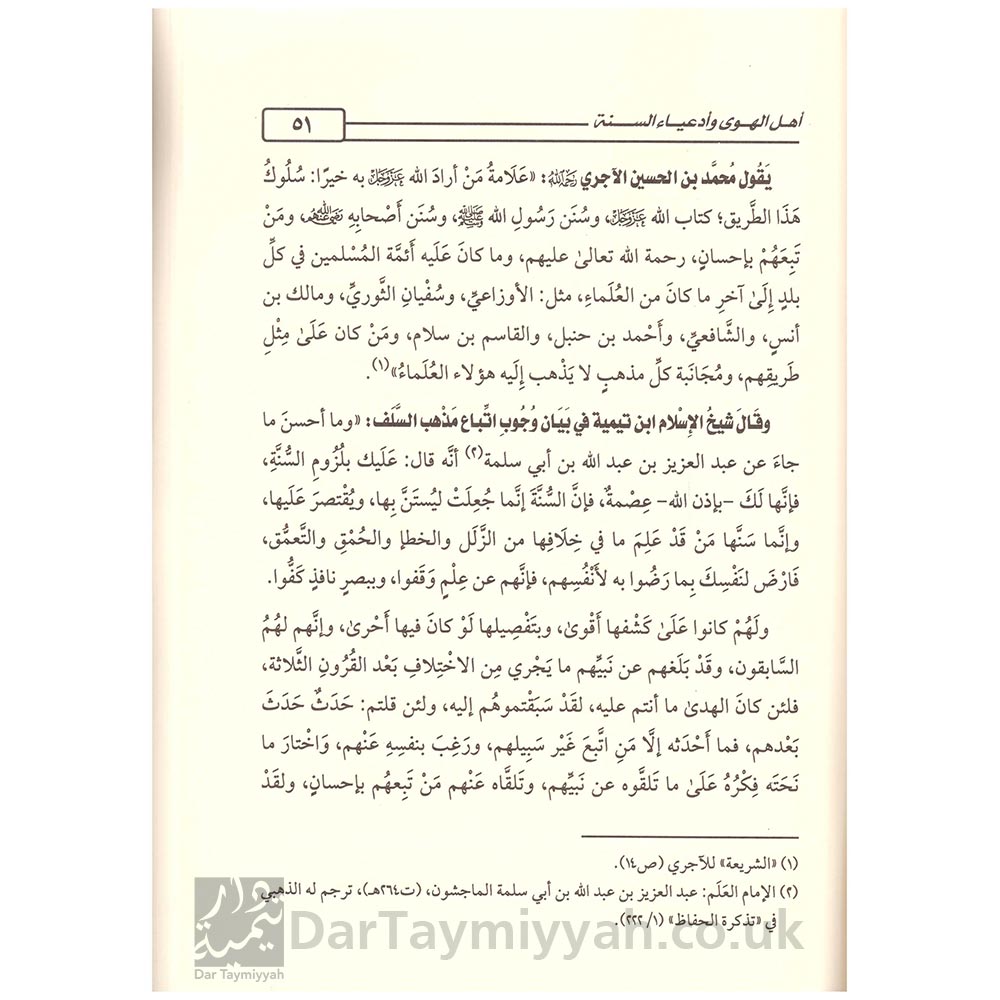 أهل الهوى وأدعياء السنة
٥١
يَقُول مُحمَّد بن الحسين الآجري رَحِمَهُ اللَّهُ: «عَلَامةُ مَنْ أرادَ الله عَزَّوَجَلَّ به خيرًا: سُلُوكُ
هَذَا الطَّريق؛ كتاب الله عَزَّوَجَلَّ، وسُنَن رَسُولِ الله ﷺ، وسُنَن أَصْحابِهِ رَضِيَ اللَّهُ عَنْهُمْ، ومَنْ
تَبِعَهُمْ بإحسانٍ، رحمة الله تعالىٰ عليهم، وما كانَ عَلَيه أَئمَّة المُسْلمين في كلِّ
بلدٍ إِلَىٰ آخرِ ما كانَ من العُلَماءِ، مثل: الأوزاعيِّ، وسُفْيان الثَّوريِّ، ومالك بن
أنسٍ، والشَّافعيِّ، وأَحْمد بن حنبل، والقاسم بن سلام، ومَنْ كان عَلَىٰ مِثْلِ
طَريقِهم، ومُجَانَبة كلِّ مذهبٍ لا يَذْهب إلَيه هؤلاء العُلَماءُ»(١).
وقَالَ شيخُ الإسْلام ابن تيمية في بَيَان وُجُوبِ اتِّباع مَذْهب السَّلَف: «وما أحسنَ ما
جاءَ عن عبد العزيز بن عبد الله بن أبي سلمة(٢) أنَّه قال: عَلَيك بلُزُومِ السُّنَّةِ،
فإنَّها لَكَ -بإذن الله- عِصْمةٌ، فإنَّ السُّنَّةَ إنَّما جُعِلَتْ ليُستَنَّ بِها، ويُقْتصرَ عَلَيها،
وإنَّما سَنَّها مَنْ قَدْ عَلِمَ ما في خِلَافِها من الزَّلَل والخطإ والحُمْقِ والتَّعمُّق،
فَارْضَ لنَفْسِكَ بِما رَضُوا به لأَنْفُسِهم، فإنَّهم عن عِلْمٍ وَقَفوا، وببصرٍ نافذٍ كَفُّوا.
ولَهُمْ كانوا عَلَىٰ كَشْفها أَقْوىٰ، وبتَفْصِيلها لَوْ كانَ فيها أَحْرىٰ، وإنَّهم لهُمُ
السَّابقون، وقَدْ بَلَغهم عن نَبيِّهم ما يَجْري مِن الاخْتِلافِ بَعْد القُرُونِ الثَّلاثة،
فلئن كانَ الهدىٰ ما أنتم عليه، لقَدْ سَبَقْتموهُم إليه، ولئن قلتم: حَدَثٌ حَدَثَ
بَعْدهم، فما أَحْدَثه إلَّا مَنِ اتَّبعَ غَيْر سَبِيلهم، ورَغِبَ بنفسِهِ عَنْهم، وَاخْتارَ ما
نَحَتَه فِكْرُهُ عَلَىٰ ما تَلقَّوه عن نَبيِّهم، وتَلقَّاه عَنْهم مَنْ تَبِعهُم بإحسانٍ، ولقَدْ
(١) «الشريعة» للآجري (ص١٤).
(٢) الإمام العَلَم: عبد العزيز بن عبد الله بن أبي سلمة الماجشون، (ت٢٦٤هـ)، ترجم له الذهبي
في «تذكرة الحفاظ» (١/ ٢٢٢).
دار تيمية
Dar Taymiyyah
DarTaymiyyah.co.uk